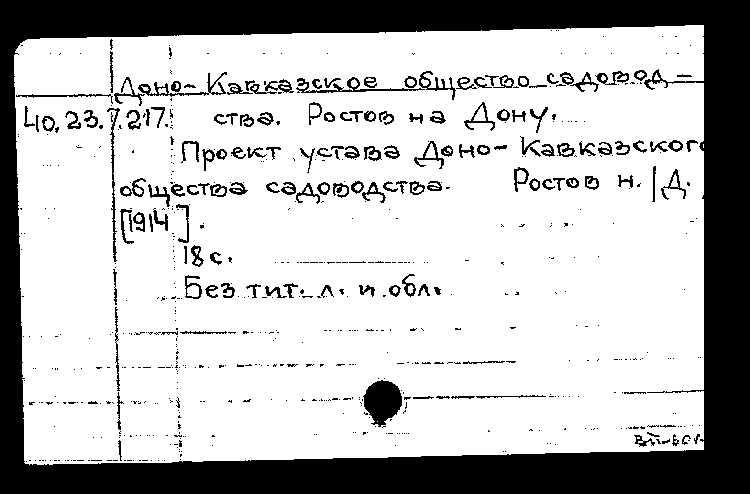 Доно-Кавказское общество садовод-
40.23.7.217. ства. Ростов на Дону.
Проект устава Доно-Кавказского
общества садоводства. Ростов н./Д.,
[1914].
18 с.
Без тит. л. и обл.